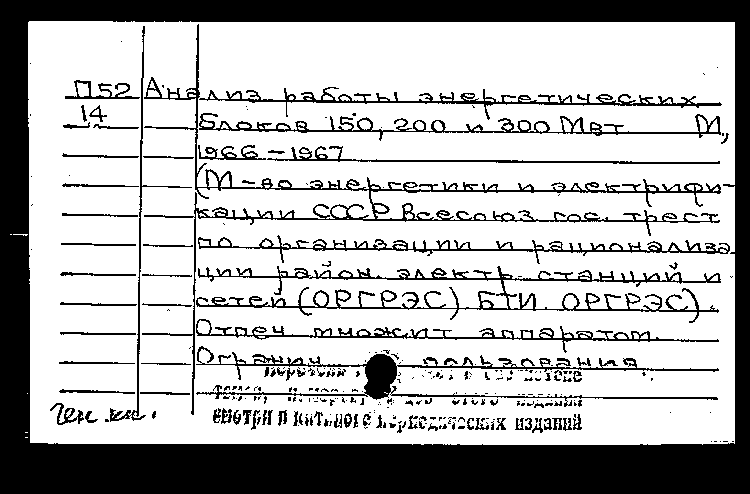 П52 Анализ работы энергетических
14 блоков 150, 200 и 300 Мвт М,
1966-1967
(М-во энергетики и электрифи-
кации СССР Всесоюз гос. трест
по организации и рационализа
ции район. электр. станций и
сетей (ОРГРЭС) БТИ ОРГРЭС).
Отпеч множит аппаратом.
Огранич пользования
этого издания
смотри в каталоге периодических изданий
Ген. кат.